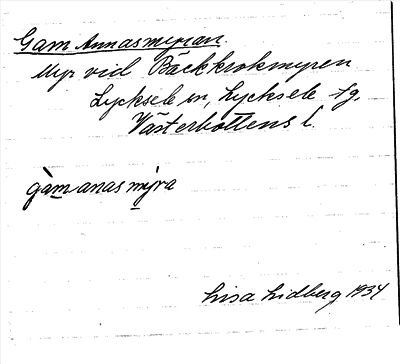 Gam Annasmyran.
Myr vid Bäckkrokmyren
Lycksele sn, Lycksele tg.
Västerbottens l.
gàm anas mýra
Lisa Lidberg 1934